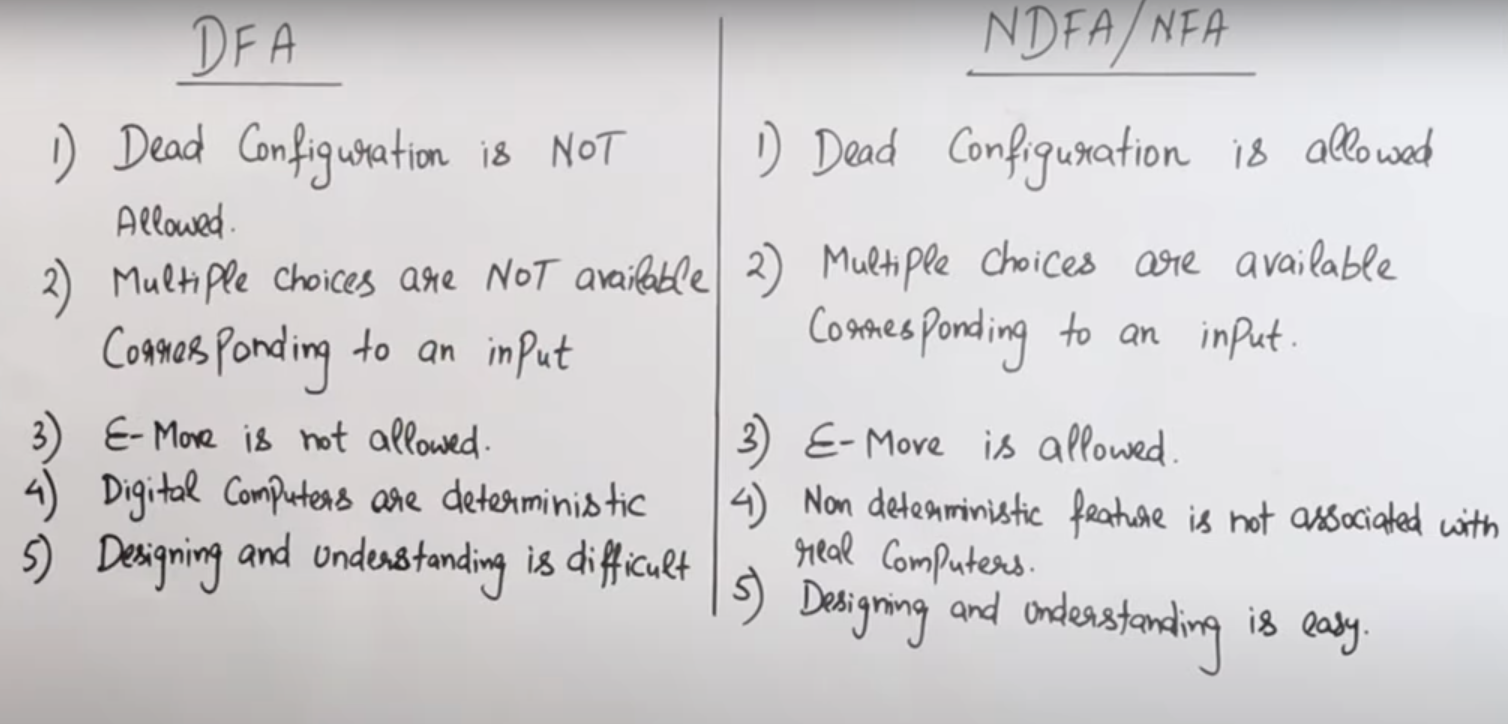 DFA
1) Dead Configuration is NOT
Allowed.
2) Multiple choices are NOT available
Corresponding to an input
3) ε-Move is not allowed.
4) Digital Computers are deterministic
5) Designing and understanding is difficult
NDFA/NFA
1) Dead Configuration is allowed
2) Multiple choices are available
Corresponding to an input.
3) ε-Move is allowed.
4) Non deterministic feature is not associated with
real Computers.
5) Designing and understanding is easy.